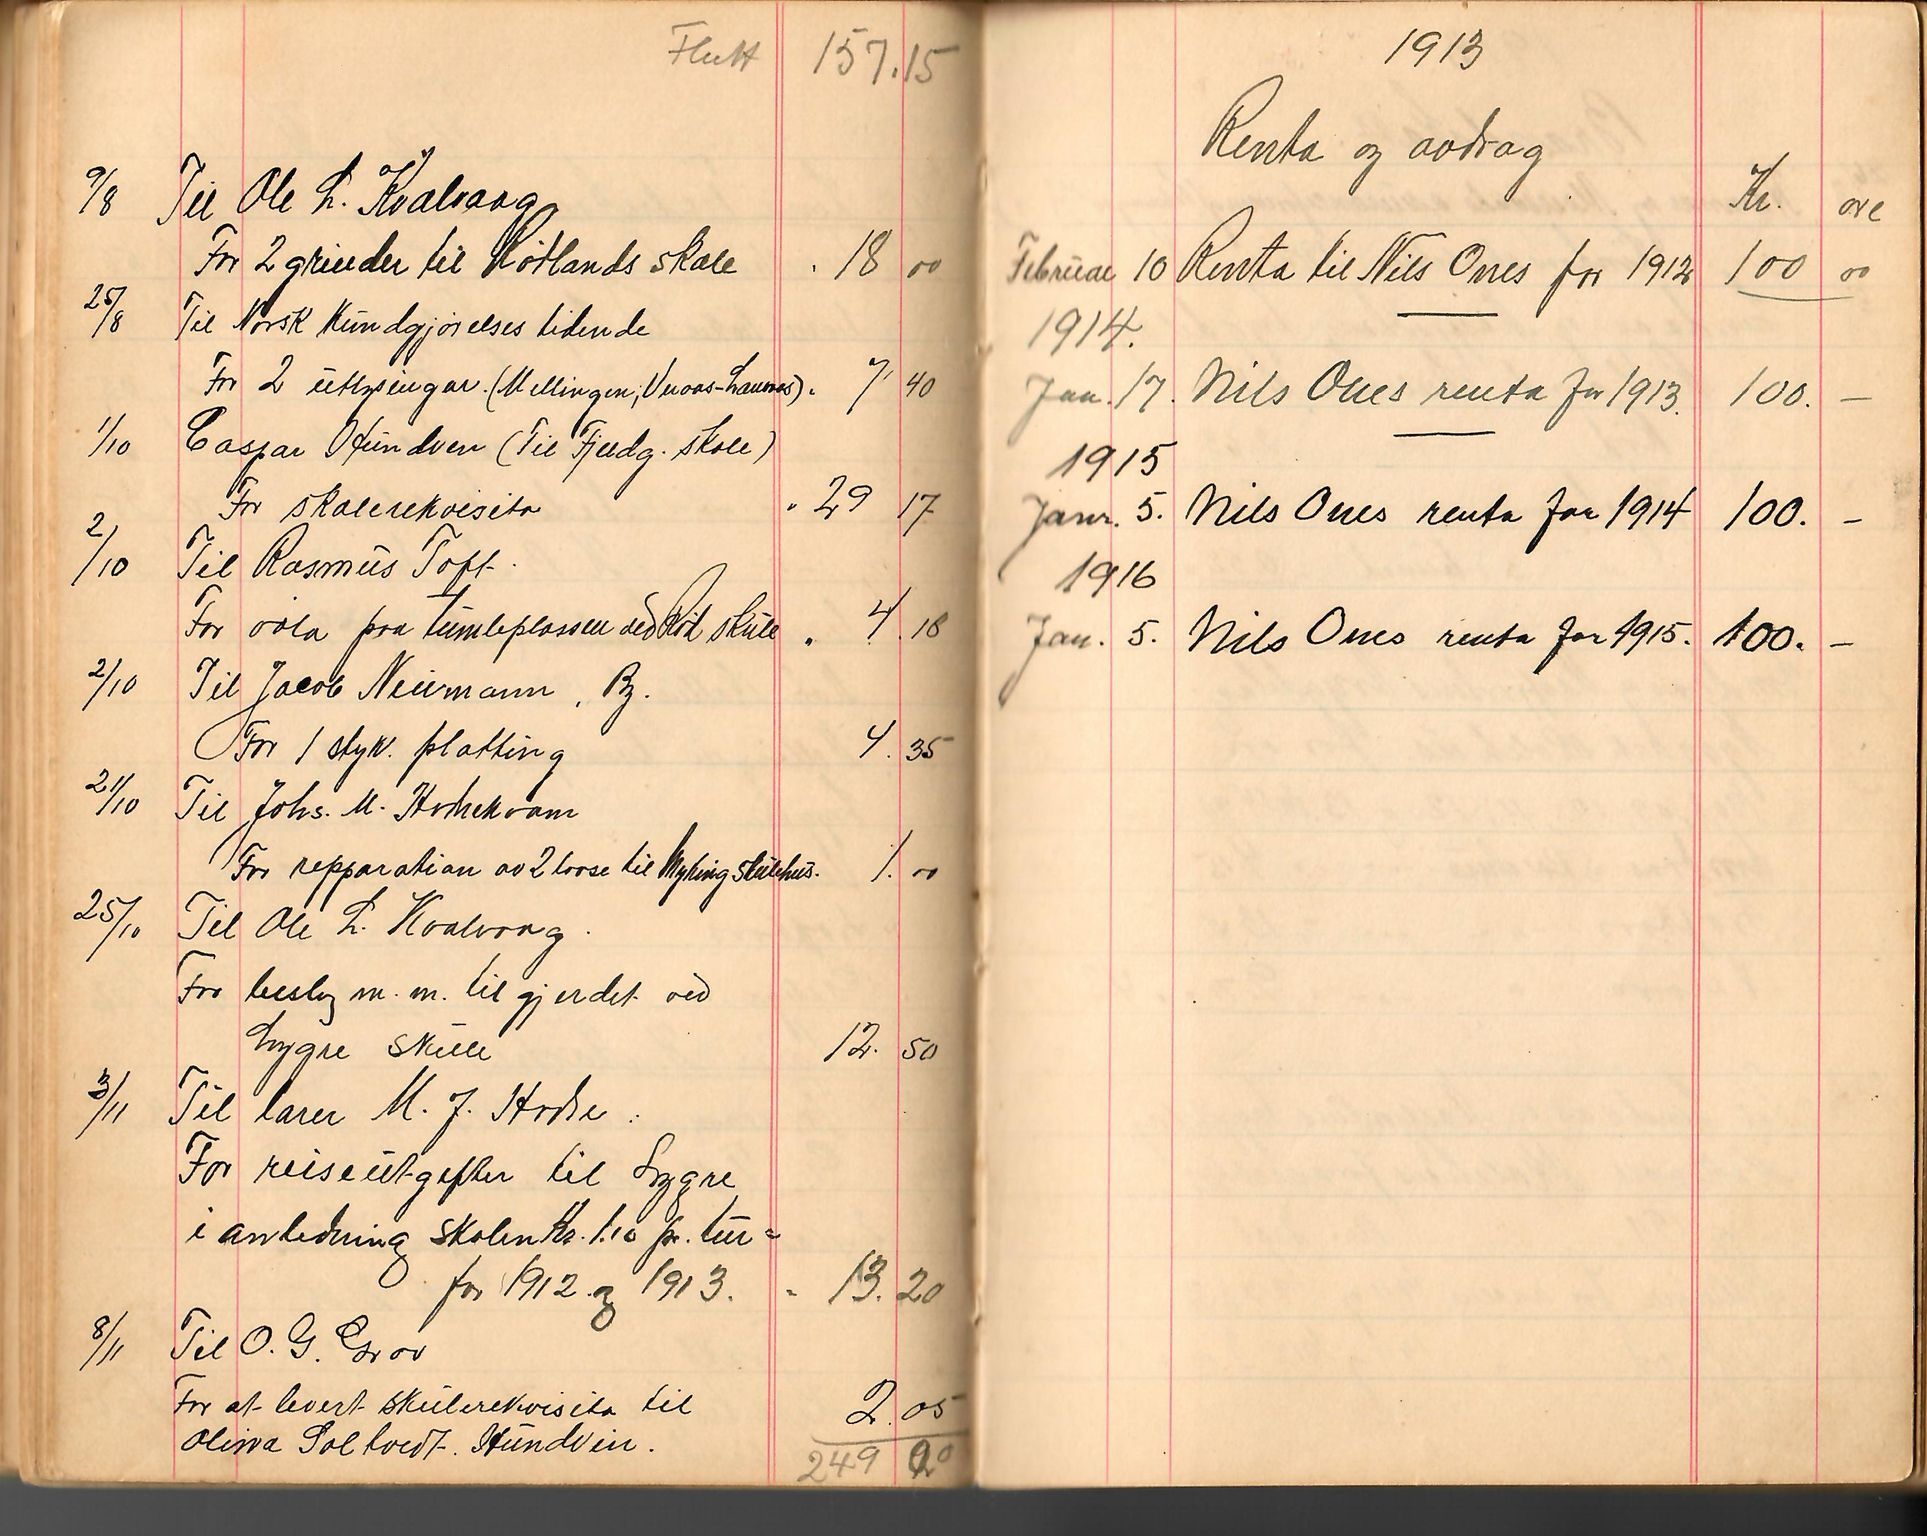 Flutt 157.15
9/8 Til Ole L. Kvalvaag
For 2 grinder til Rötlands skole . 18 00
25/8 Til Norsk Kundgjörelses tidende
For 2 utlysingar. (Mellingen, ). 7. 40
1/10 Caspar Hundven (Til Fjeldg. skole)
For skolerekvisita . 29 17
2/10 Til Rasmus Toft.
For vøla pra tumleplassen ved Röd skule . 4. 18
2/10 Til Jacob Neumann, By.
For 1 styk. platting 4. 35
21/10 Til Johs. M. Hodnekvam
For repparation av 2 to til Myking skulehus. 1. 00
25/10 Til Ole L. Kvalvaag.
For beslag m. m. til gjerdet ved
Lygre skule 12. 50
3/11 Til lærer M. J. Hodne.
For reiseutgefter til Lygre
i anledning skolen Kr. 1.10 pr. tur =
for 1912 og 1913. - 13. 20
8/11 Til O. G. Grov
For at levert skulerekvisita til
Oliva Soltvedt. Hundvin. 2. 05
249 00
1913
Renta og avdrag
Kr. øre
Februar 10 Renta til Nils Ones for 1912 100 00
1914.
Jan. 17. Nils Ones renta for 1913. 100. —
1915
Janr. 5. Nils Ones renta for 1914 100. —
1916
Jan. 5. Nils Ones renta for 1915. 100. —